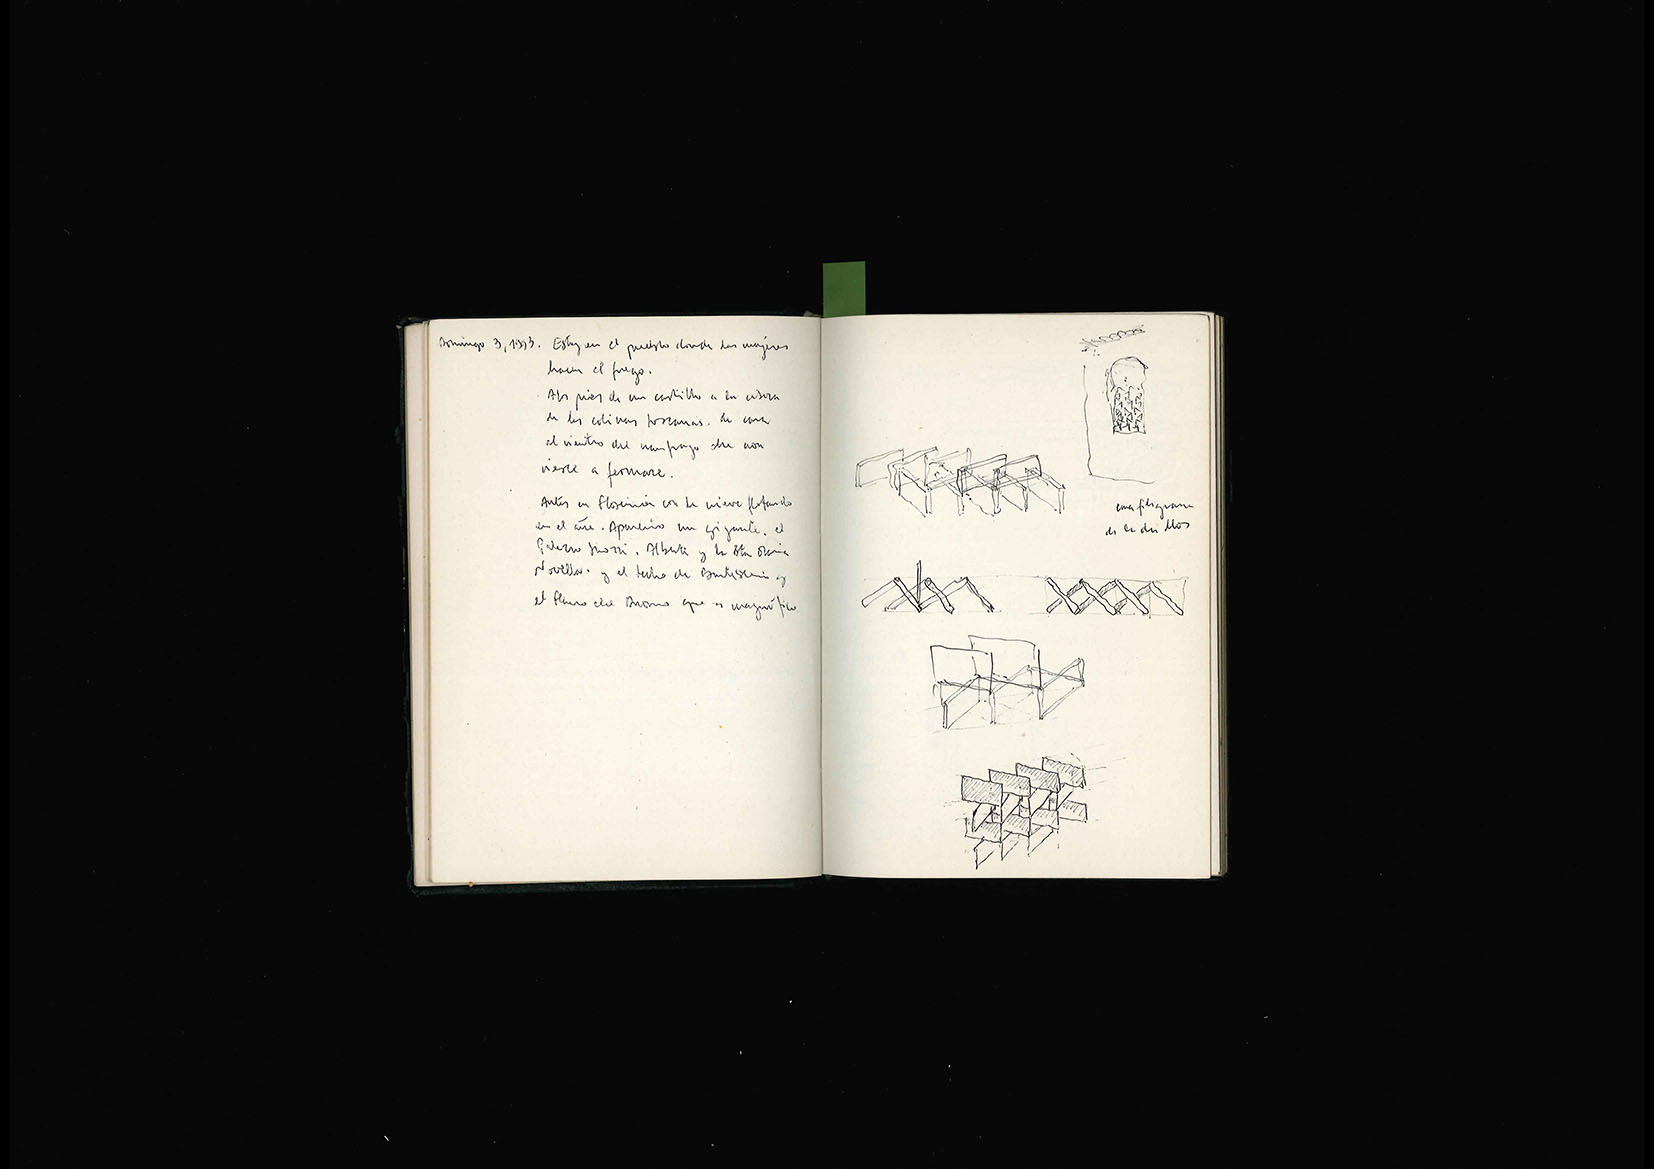 Domingo 3, 1993. Estoy en el pueblo donde las mujeres
hacen el fuego.
A los pies de un castillo a la cabeza
de las colinas toscanas. La casa
el vientre del naufrago che non
riesce a fermare.
Antes en Florencia con la nieve flotando
en el aire. Apareció un gigante, el
Palazzo Pitti, Alberti y la Sta Maria
Novella. y el techo de Baptisterio y
el Duomo que es magnífico
una filigrana
de ladrillos